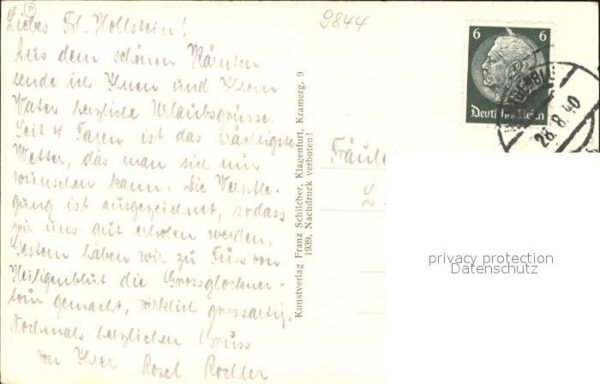 9844
Liebes Frl. Hollstein!
Aus dem schönen Kärnten
sende ich Ihnen und Ihrem
Vater herzliche Urlaubsgrüsse.
Seit 4 Tagen ist das prächtigste
Wetter, das man sich nur
wünschen kann. Die Verpfle-
gung ist ausgezeichnet, sodass
wir uns gut erholen werden.
Gestern haben wir zu Fuss von
Heiligenblut die Grossglockner-
tour gemacht, wirklich grossartig.
Nochmals herzlichen Gruss
von Ihrer Rosel
Kunstverlag Franz Schilcher, Klagenfurt, Kramerg. 9
1939. Nachdruck verboten!
6 6
Deutsches Reich
26.8.40
Fräule
privacy protection
Datenschutz